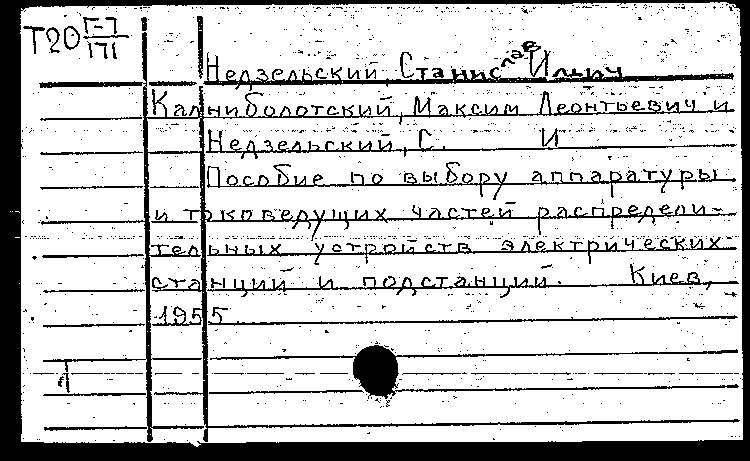 Т20 Г-7
171
Недзельский, Станислав Ильич
Калниболотский, Максим Леонтьевич и
Недзельский, С. И
Пособие по выбору аппаратуры
и токоведущих частей распредели-
тельных устройств электрических
станций и подстанций. Киев,
1955
1